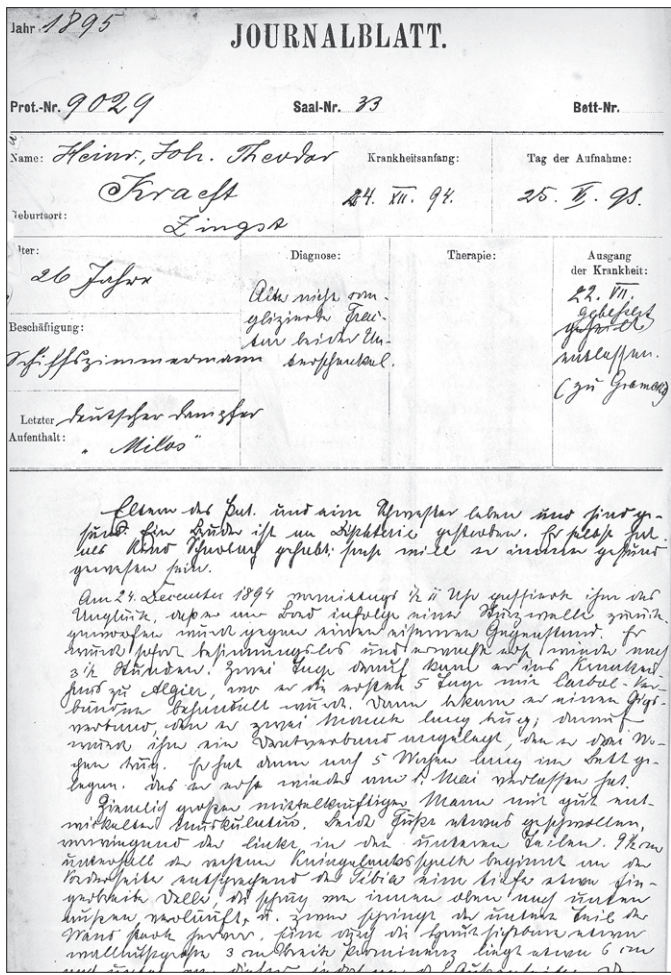 Jahr 1895
JOURNALBLATT.
Prot.-Nr. 9029 Saal-Nr. 33 Bett-Nr.
Name: Heinr. Joh. Theodor
Kracht
Geburtsort: Zingst
Krankheitsanfang:
24. XII. 94.
Tag der Aufnahme:
25. V. 95.
Alter:
26 Jahre
Beschäftigung:
Schiffszimmermann
Letzter Aufenthalt: deutscher Dampfer
"Milos"
Diagnose:
Alte nicht com-
plizierte Frac-
tur beider Un-
terschenkel.
Therapie:
Ausgang
der Krankheit:
22. VII.
gebessert
geheilt
entlassen.
(zu
Eltern des Pat. und eine Schwester leben und sind ge-
sund. Ein Bruder ist an Diphterie gestorben. Er selbst hat
als Kind Scharlach gehabt; sonst will er immer gesund
gewesen sein.
Am 24. December 1894 vormittags ½ 11 Uhr passierte ihm das
Unglück, daß er an Bord infolge einer Sturzwelle zurück-
geworfen wurde gegen einen eisernen Gegenstand. Er
wurde sofort besinnungslos und erwachte erst wieder nach
3 ½ Stunden. Zwei Tage darauf kam er ins Kranken-
haus zu Algier, wo er die ersten 5 Tage mit Carbol-Ver-
bänden behandelt wurde. Dann bekam er einen Gips-
verband den er zwei Monate lang trug; darauf
wurde ihm ein verband angelegt, den er drei Wo-
chen trug. Er hat dann noch 5 Wochen lang im Bett ge-
legen, das er erst wieder am 1. Mai verlassen hat.
Ziemlich großer mittelkräftiger Mann mit gut ent-
wickelter Muskulatur. Beide Füße etwas geschwollen,
vorwiegend der linke in den unteren Teilen. 9 ½ cm
unterhalb der rechten Kniegelenksspalte beginnt an der
Vorderseite entsprechend der Tibia eine tiefe etwa fin-
gerbreite Delle, die schräg von innen oben nach unten
außen verläuft, u. zwar springt der untere Teil der
Wand stark hervor. Eine durch die Haut sichtbare etwa
wallnußgroße 3 cm breite Prominenz liegt etwa 6 cm